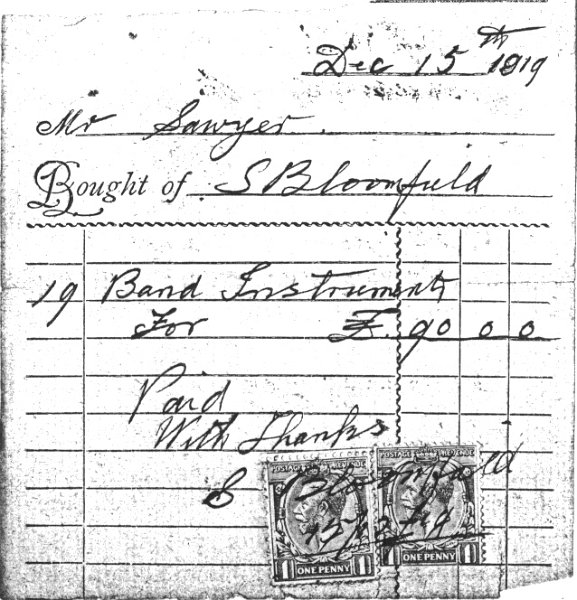 Dec 15th 1919
Mr Sawyer
Bought of S Bloomfield
19 Band Instruments
For £ 90 0 0
Paid
With Thanks
S Bloomfield
15/12/19
POSTAGE REVENUE POSTAGE REVENUE
1 ONE PENNY 1 1 ONE PENNY 1